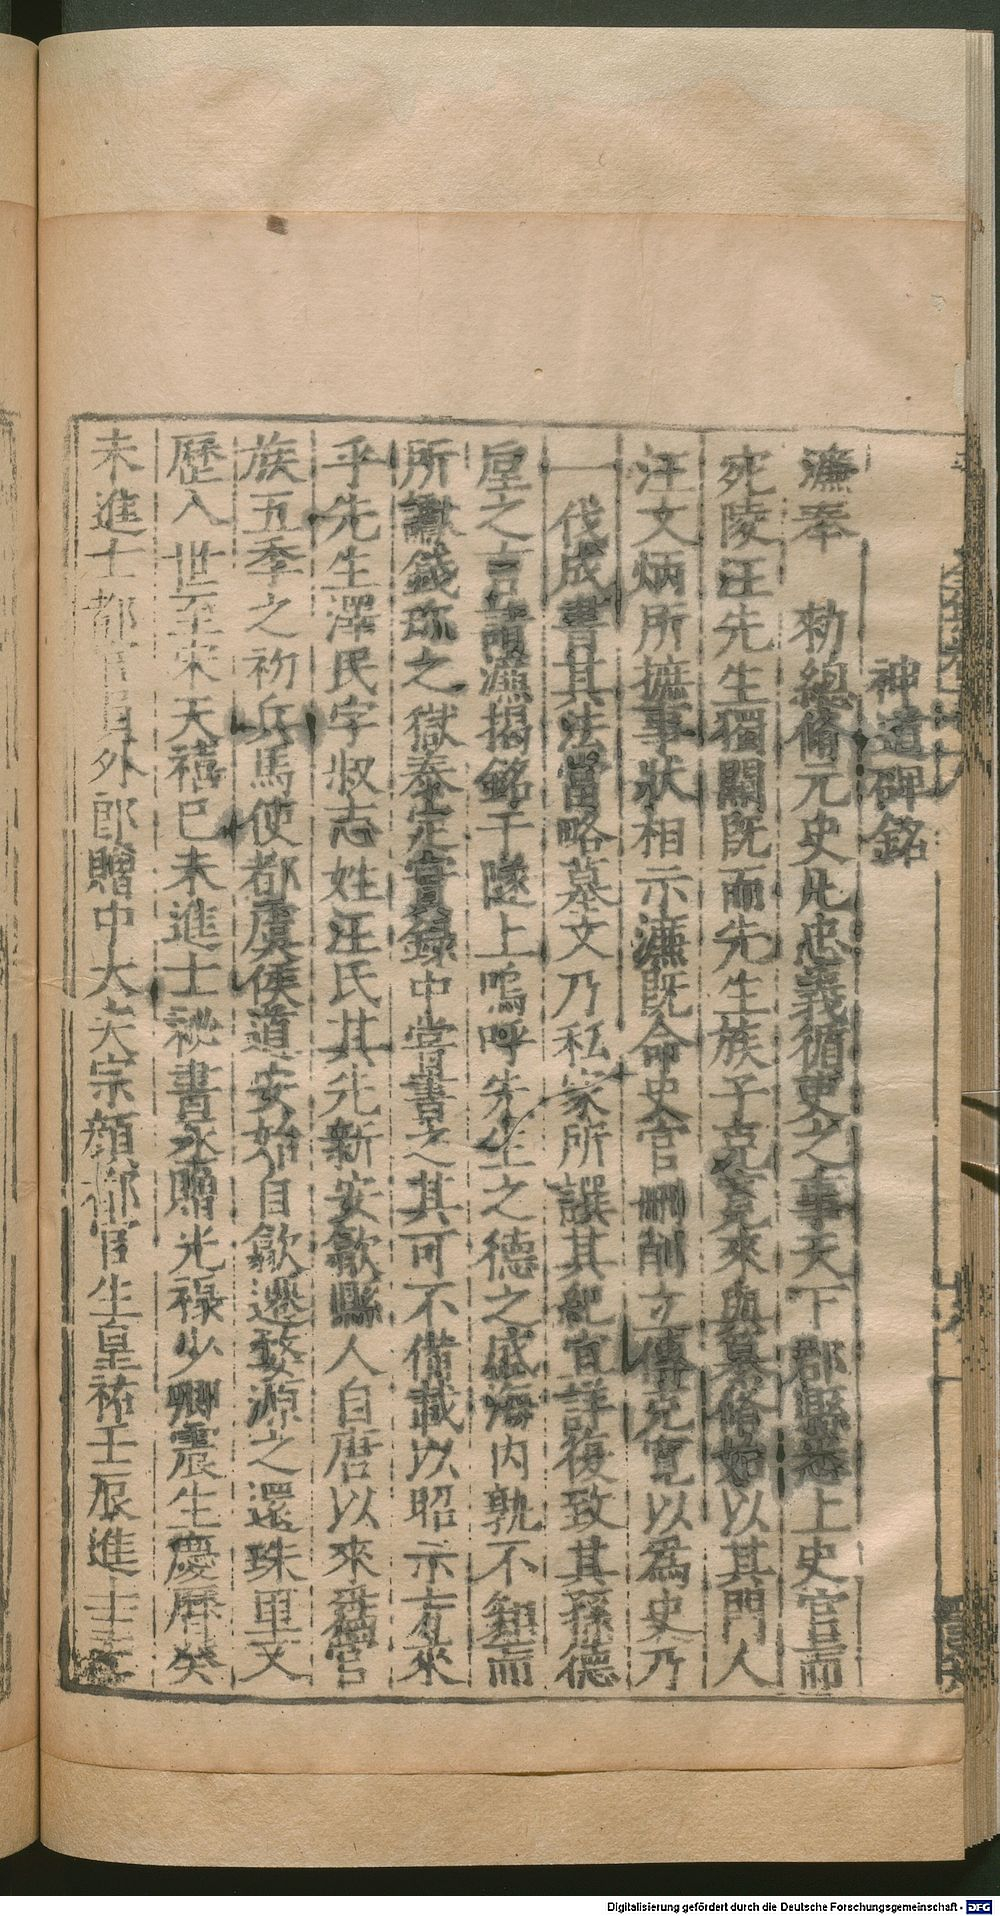 神道碑銘
濂奉　勑總脩元史凡忠義循吏之事天下郡縣悉上史官而
宛陵汪先生獨闕既而先生族子克寬來與纂脩始以其門人
汪文炳所摭事狀相示濂既命史官刪削立傳克寬以為史乃
一代成書其法當略墓文乃私家所譔其紀宜詳復致其孫德
㞐之言請濂揭銘于隧上嗚呼先生之德之盛海内孰不知而
所讞錢珍之獄泰定實録中當書之其可不備載以昭示方來
乎先生澤民字叔志姓汪氏其先新安歙縣人自唐以來為宦
族五季之初兵馬使都虞侯道安始自歙遷婺源之還珠里又
歷入世至宋天禧巳未進士祕書丞贈光禄少卿震生慶曆癸
未進士都官員外郎贈中大夫宗顔都官生皇祐壬辰進士
Digitalisierung gefördert durch die Deutsche Forschungsgemeinschaft - DFG